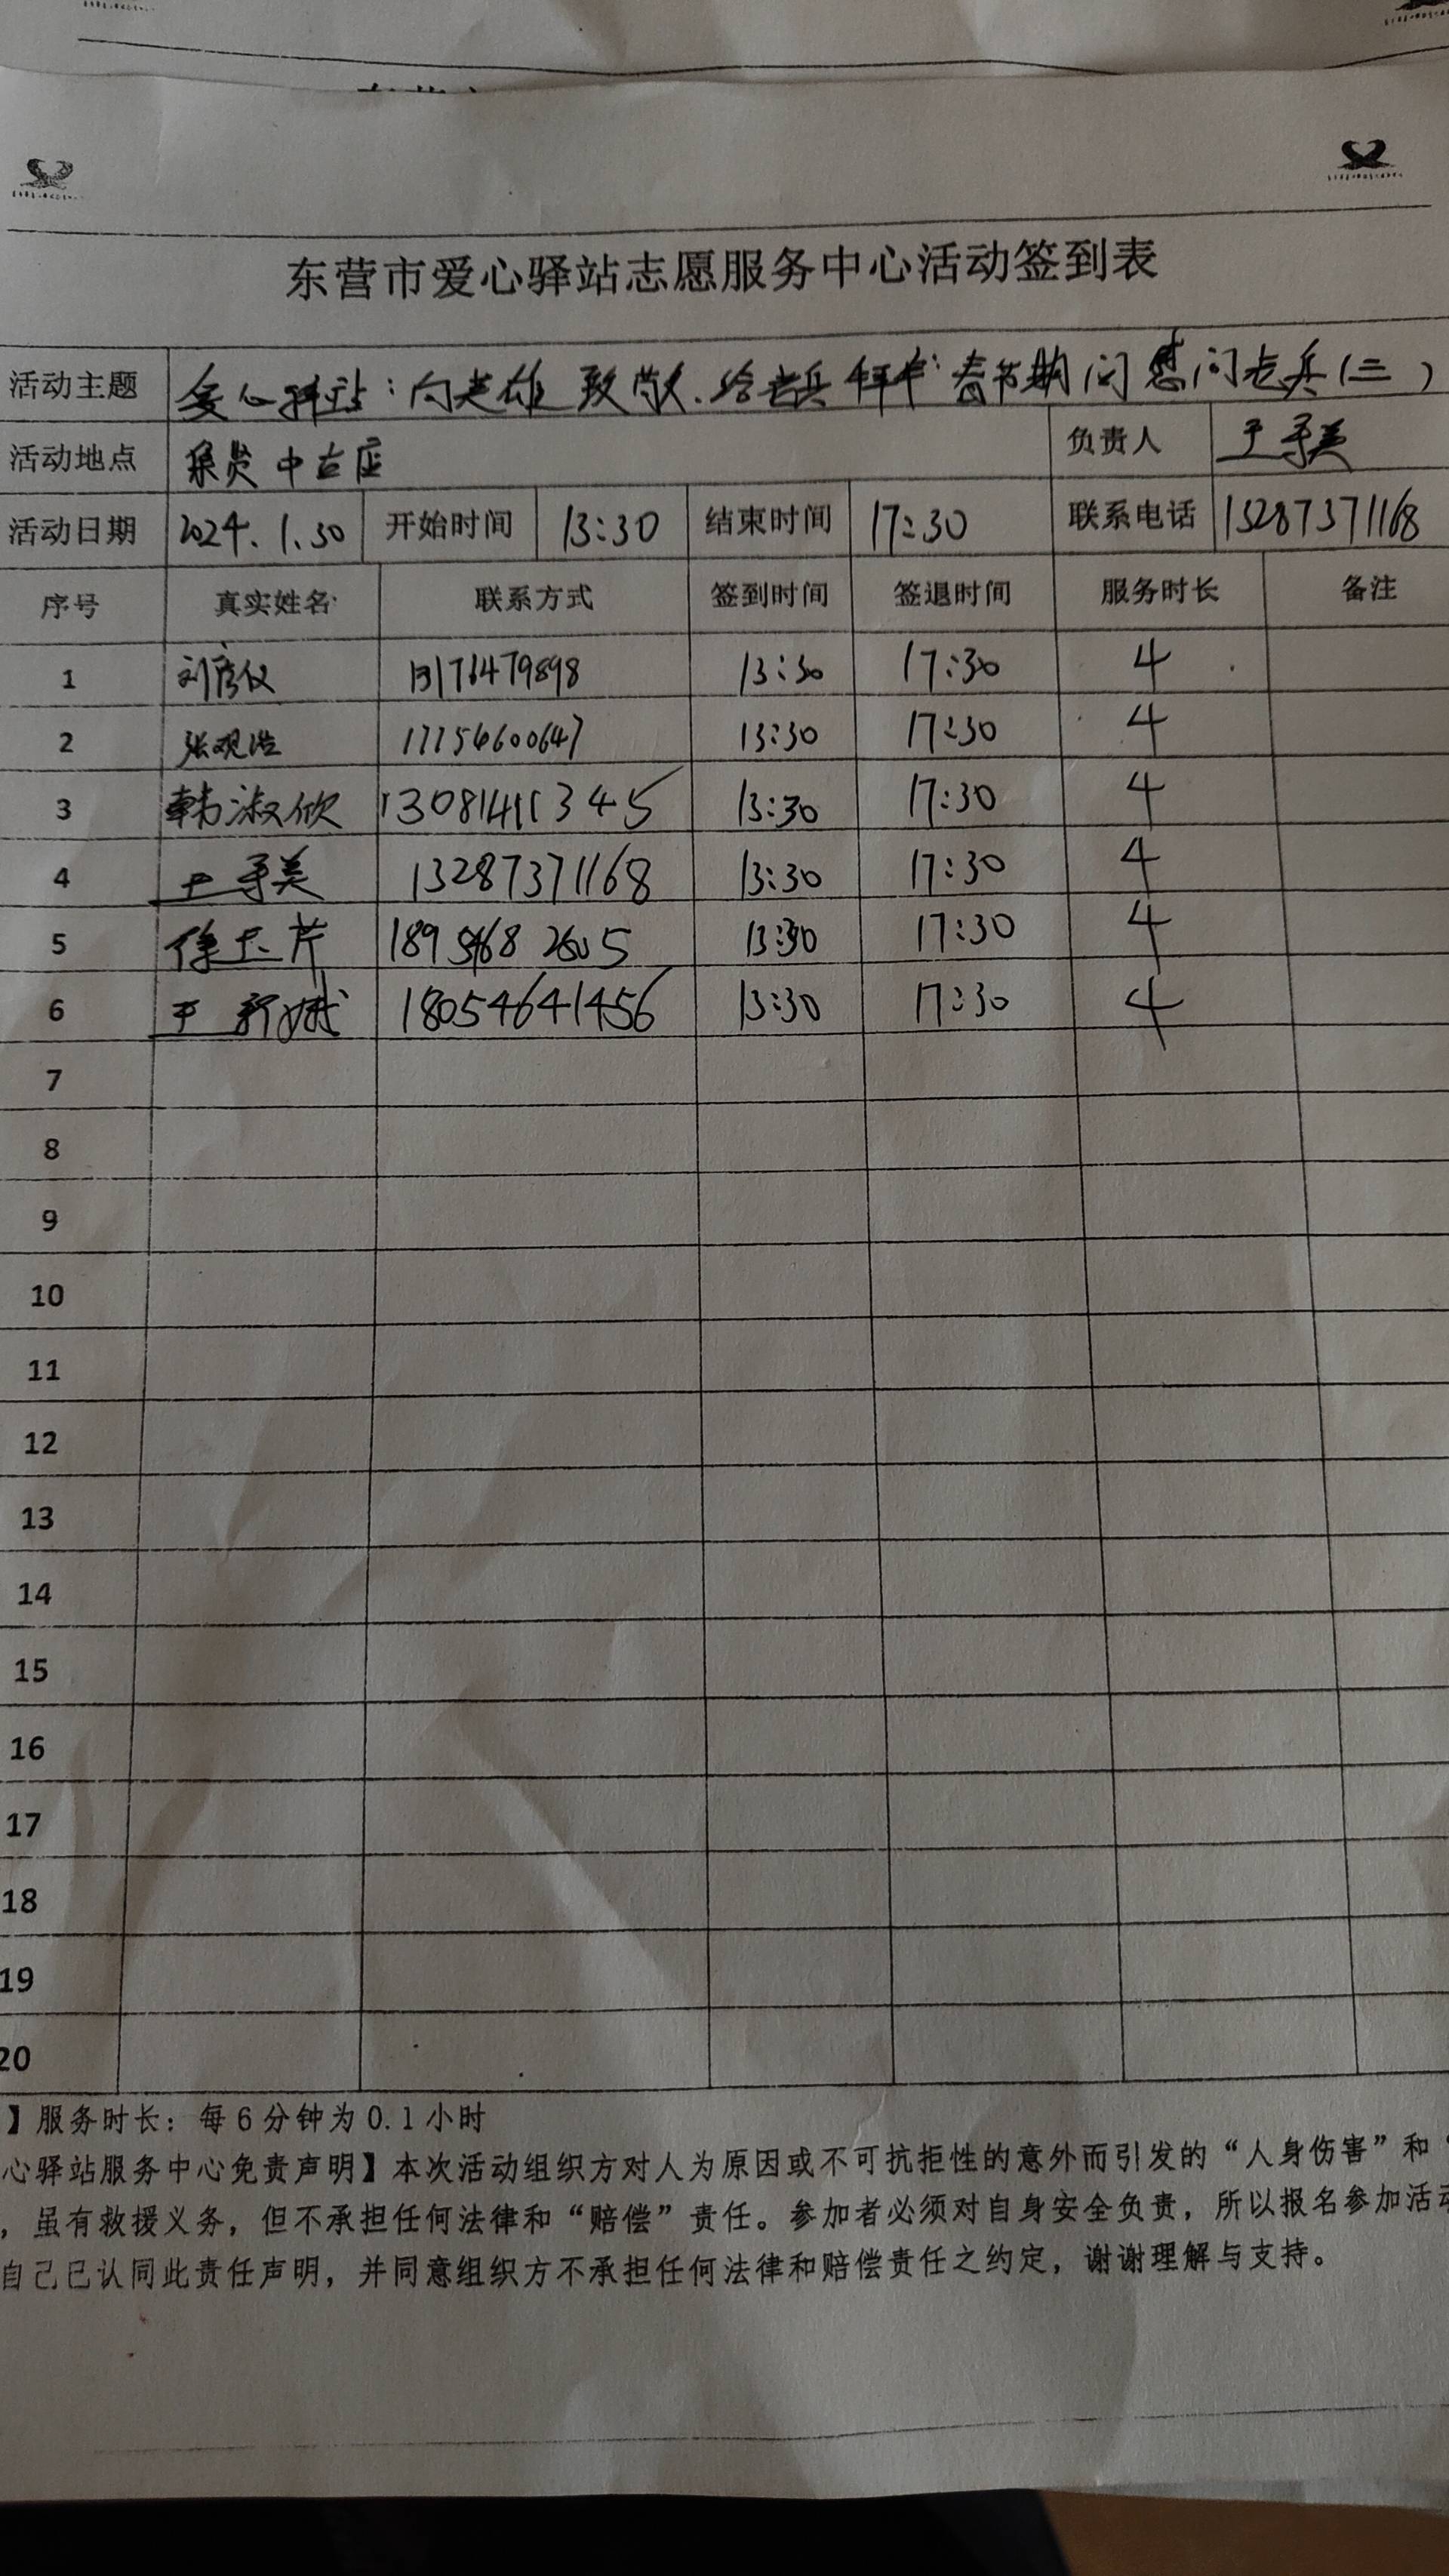 东营市爱心驿站志愿服务中心活动签到表
活动主题 爱心驿站:向英雄致敬.给老兵拜年"春节期间慰问老兵(三)
活动地点 负责人
活动日期 2024.1.30 开始时间 13:30 结束时间 17:30 联系电话 13287371168
序号 真实姓名 联系方式 签到时间 签退时间 服务时长 备注
1 刘彦仪 13176479898 13:30 17:30 4
2 张观浩 17754600647 13:30 17:30 4
3 韩淑欣 13081411345 13:30 17:30 4
4 13287371168 13:30 17:30 4
5 徐玉芹 13:30 17:30 4
6 18054641456 13:30 17:30 4
7
8
9
10
11
12
13
14
15
16
17
18
19
20
】服务时长:每6分钟为0.1小时
心驿站服务中心免责声明】本次活动组织方对人为原因或不可抗拒性的意外而引发的“人身伤害”和“
,虽有救援义务,但不承担任何法律和“赔偿”责任。参加者必须对自身安全负责,所以报名参加活动
自己已认同此责任声明,并同意组织方不承担任何法律和赔偿责任之约定,谢谢理解与支持。